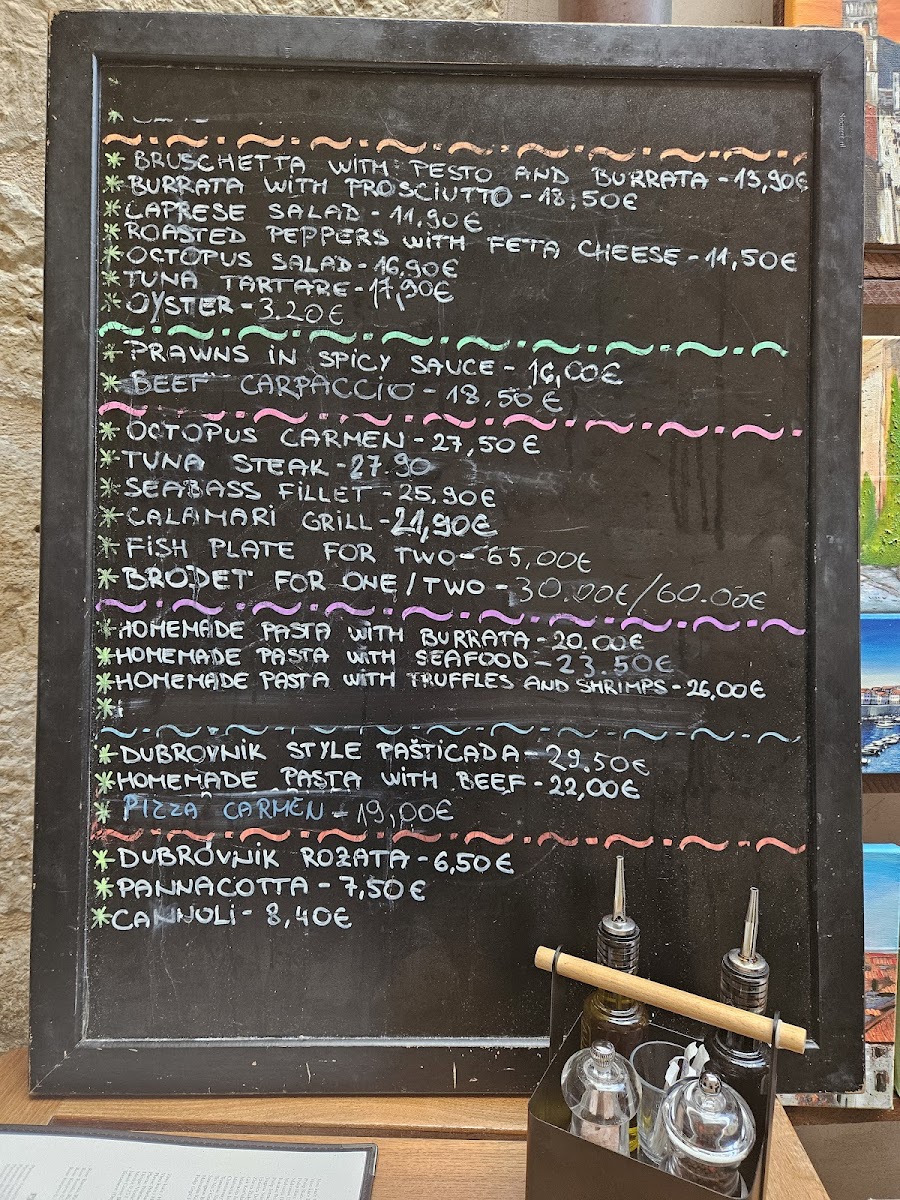 * BRUSCHETTA WITH PESTO AND BURRATA - 13,90€
* BURRATA WITH PROSCIUTTO - 18,50€
* CAPRESE SALAD - 11,90€
* ROASTED PEPPERS WITH FETA CHEESE - 11,50€
* OCTOPUS SALAD - 16,90€
* TUNA TARTARE - 17,90€
* OYSTER - 3.20€
* PRAWNS IN SPICY SAUCE - 16,00€
* BEEF CARPACCIO - 18,50€
* OCTOPUS CARMEN - 27,50€
* TUNA STEAK - 27.90
* SEABASS FILLET - 25,90€
* CALAMARI GRILL - 21,90€
* FISH PLATE FOR TWO - 65,00€
* BRODET FOR ONE/TWO - 30.00€/60.00€
* HOMEMADE PASTA WITH BURRATA - 20.00€
* HOMEMADE PASTA WITH SEAFOOD - 23.50€
* HOMEMADE PASTA WITH TRUFFLES AND SHRIMPS - 26,00€
*
* DUBROVNIK STYLE PAŠTICADA - 29.50€
* HOMEMADE PASTA WITH BEEF - 22,00€
* PIZZA CARMEN - 19,00€
* DUBROVNIK ROŽATA - 6,50€
* PANNACOTTA - 7,50€
* CANNOLI - 8,40€